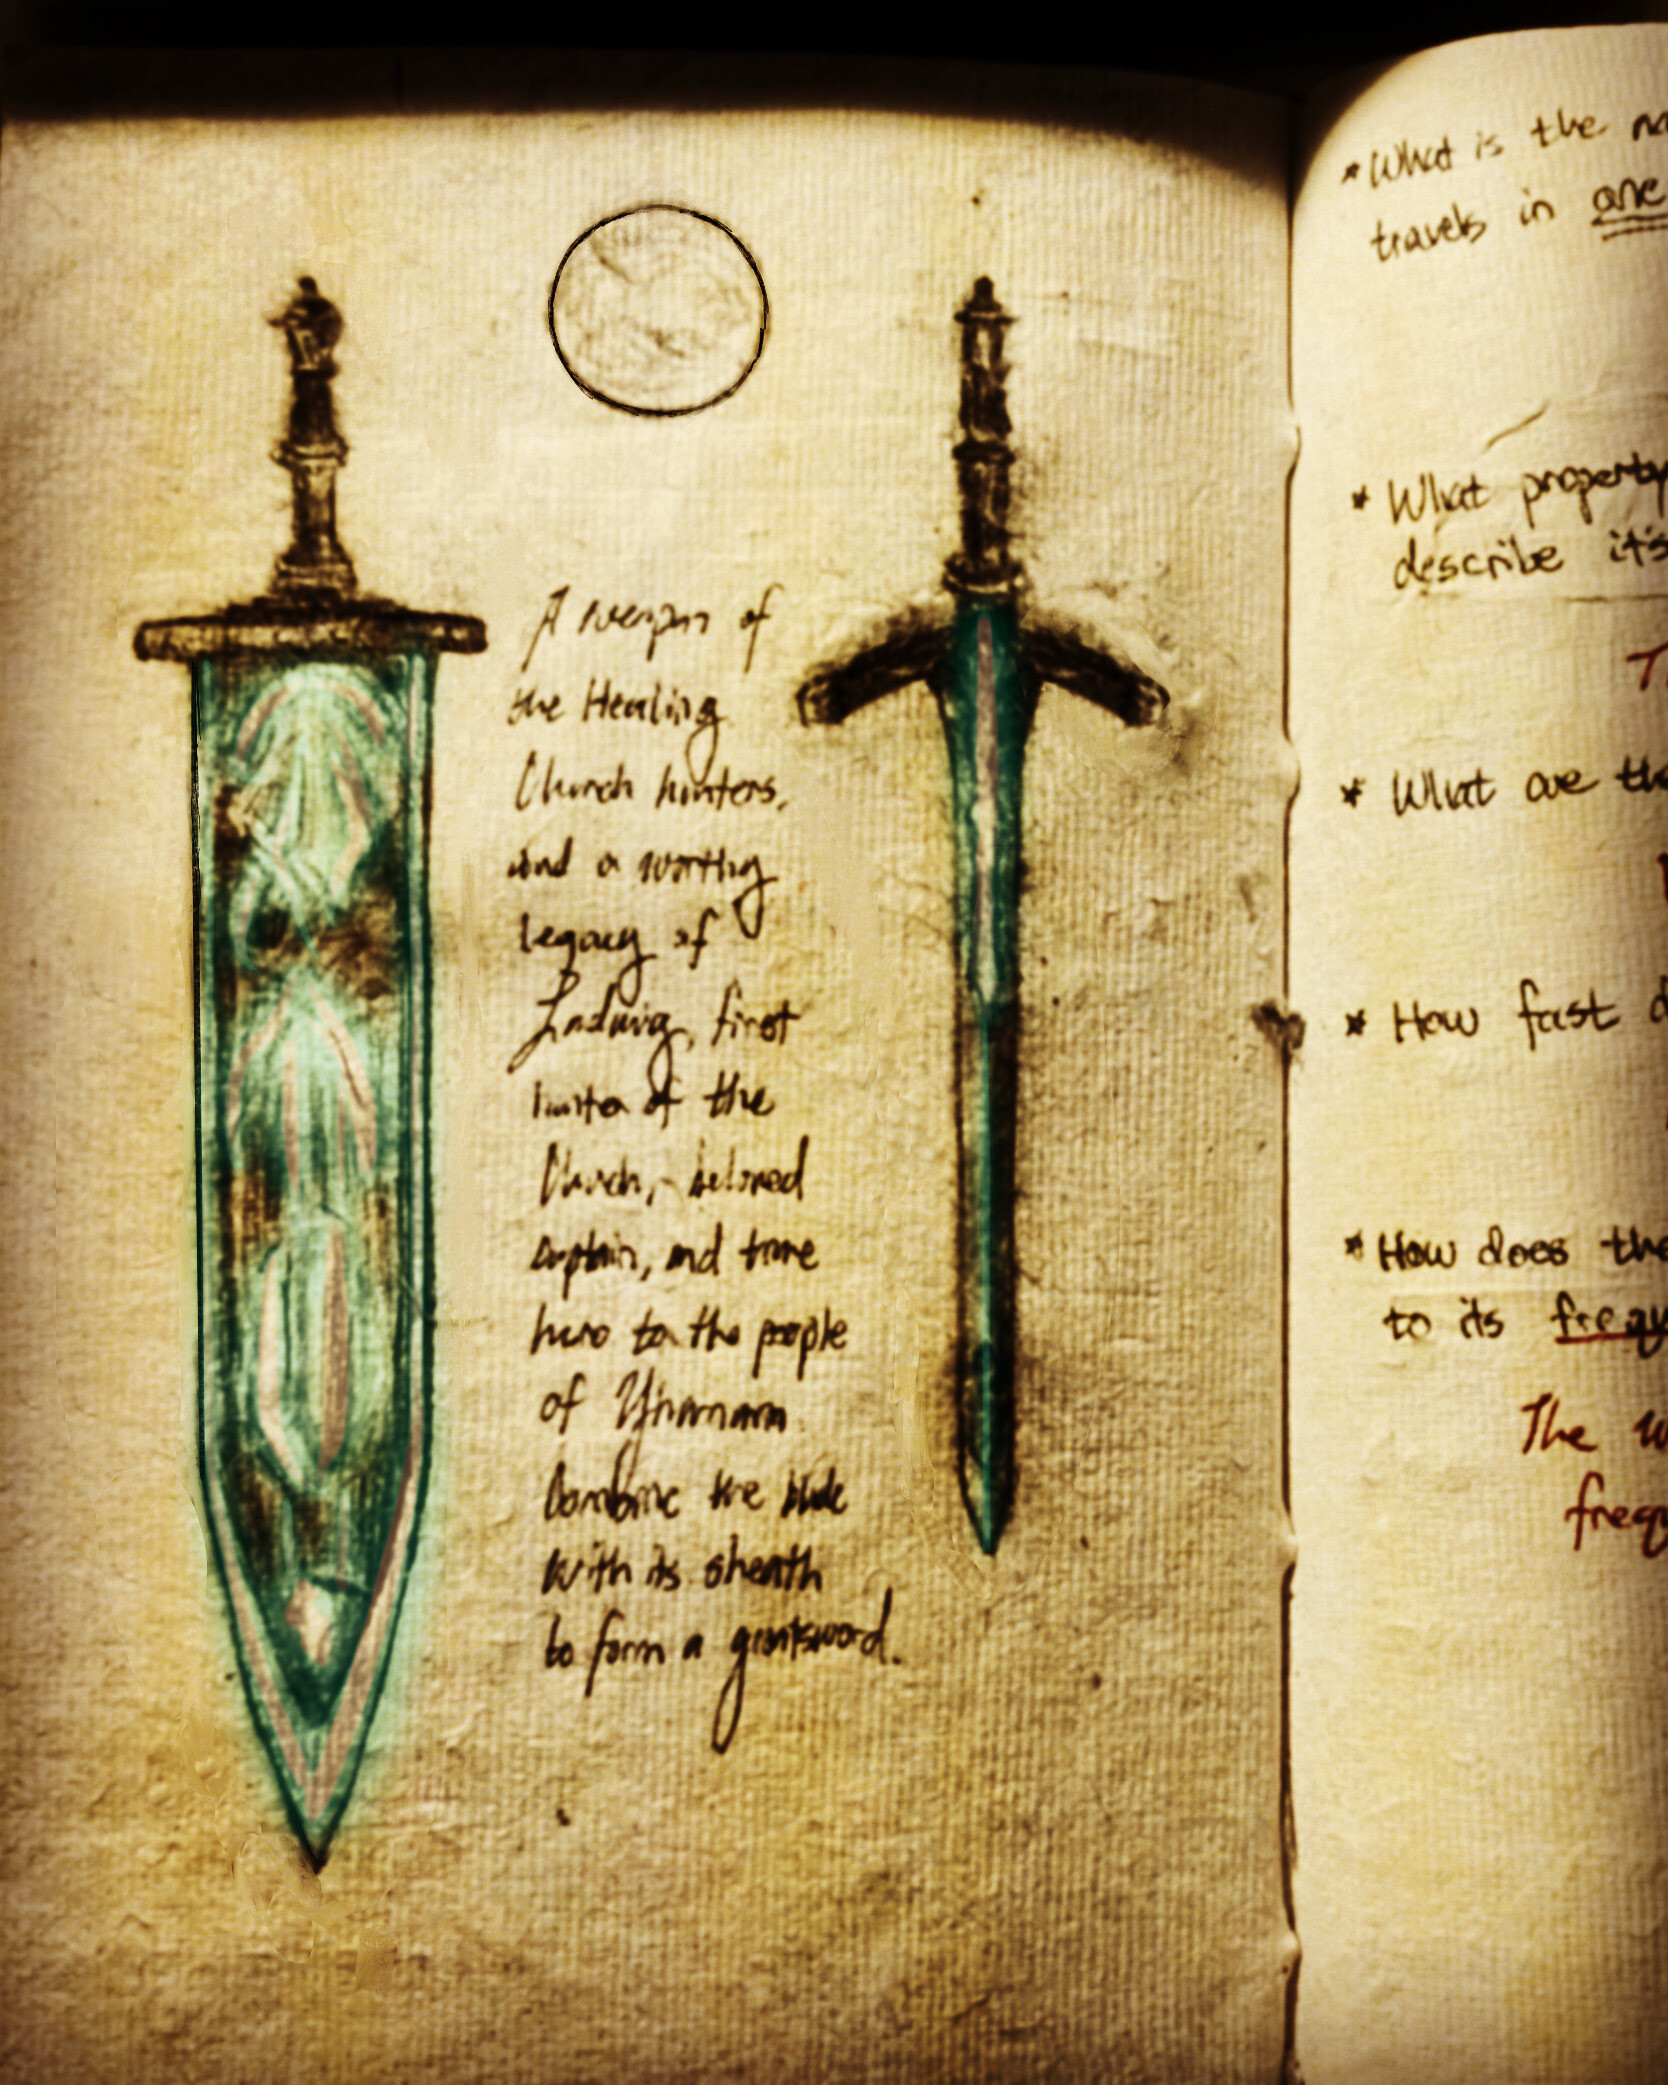 A weapon of
the Healing
Church hunters,
and a worthy
legacy of
Ludwig, first
hunter of the
Church, beloved
captain, and true
hero to the people
of Yharnam
Combine the blade
with its sheath
to form a greatsword.
* What is the
travels in one
* What property
describe it's
* What are the
* How fast
* How does the
to its freq
The w
freq